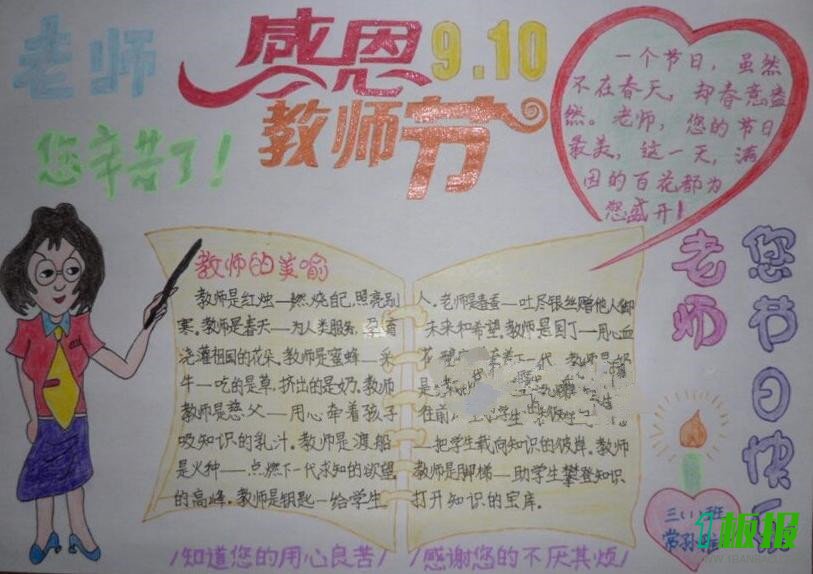 老师
感恩
9.10
教师节
您辛苦了!
一个节日,虽然
不在春天,却春意盎
然。老师,您的节日
最美,这一天,满
园的百花都为
您盛开!
教师的美喻
教师是红烛—燃烧自己,照亮别
寒.教师是春天—为人类服务,孕育
浇灌祖国的花朵.教师是蜜蜂—采
牛—吃的是草,挤出的是奶.教师
教师是慈父—用心牵着孩子
吸知识的乳汁.教师是渡船
是火种—点燃下一代求知的欲望
的高峰.教师是钥匙—给学生
人.老师是春蚕—吐尽银丝赠他人御
未来和希望.教师是园丁—用心血
下一代 教师是
是
往前 学生
—把学生载向知识的彼岸.教师
教师是脚梯—助学生攀登知识
打开知识的宝库.
老师
您节日快
三(1)班
知道您的用心良苦
感谢您的不厌其烦
板报